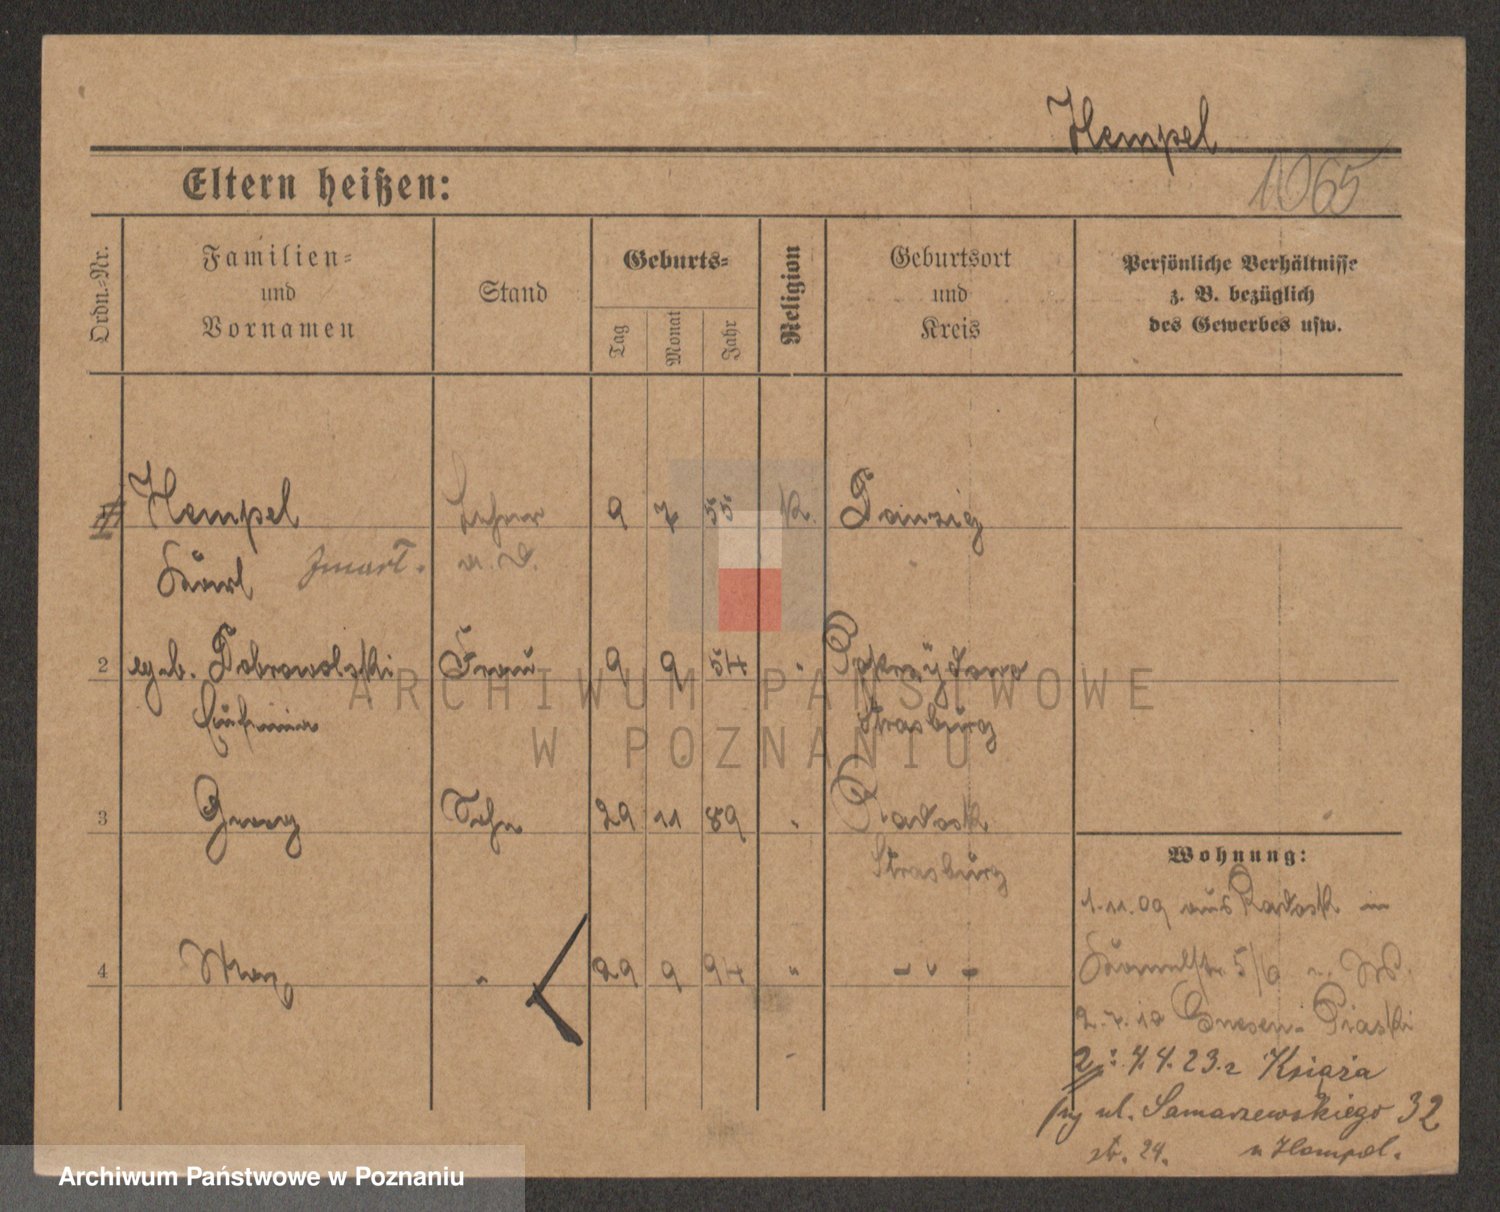 Hempel
1065
Eltern heißen:
Ordn.-Nr.
Familien-
und
Vornamen
Stand
Geburts-
Tag
Monat
Jahr
Religion
Geburtsort
und
Kreis
Persönliche Verhältnisse
z. B. bezüglich
des Gewerbes usw.
Hempel Lehrer 9 7 55 K. Danzig
Karl zmarł. a. D.
2 geb. Dobrowolski Frau 9 9 54 "
Eufemia Strasburg
3 Georg Sohn 29 11 89 " Radosk
Strasburg
4 Max " 29 9 94 " - " -
Wohnung:
1.11.09 aus Radosk in
5/6
2.7.10 Gnesen-Piaski
4.4.23.r Księża
ul. Samarzewskiego 32
str. 24. u Hempel.
ARCHIWUM PAŃSTWOWE
W POZNANIU
Archiwum Państwowe w Poznaniu